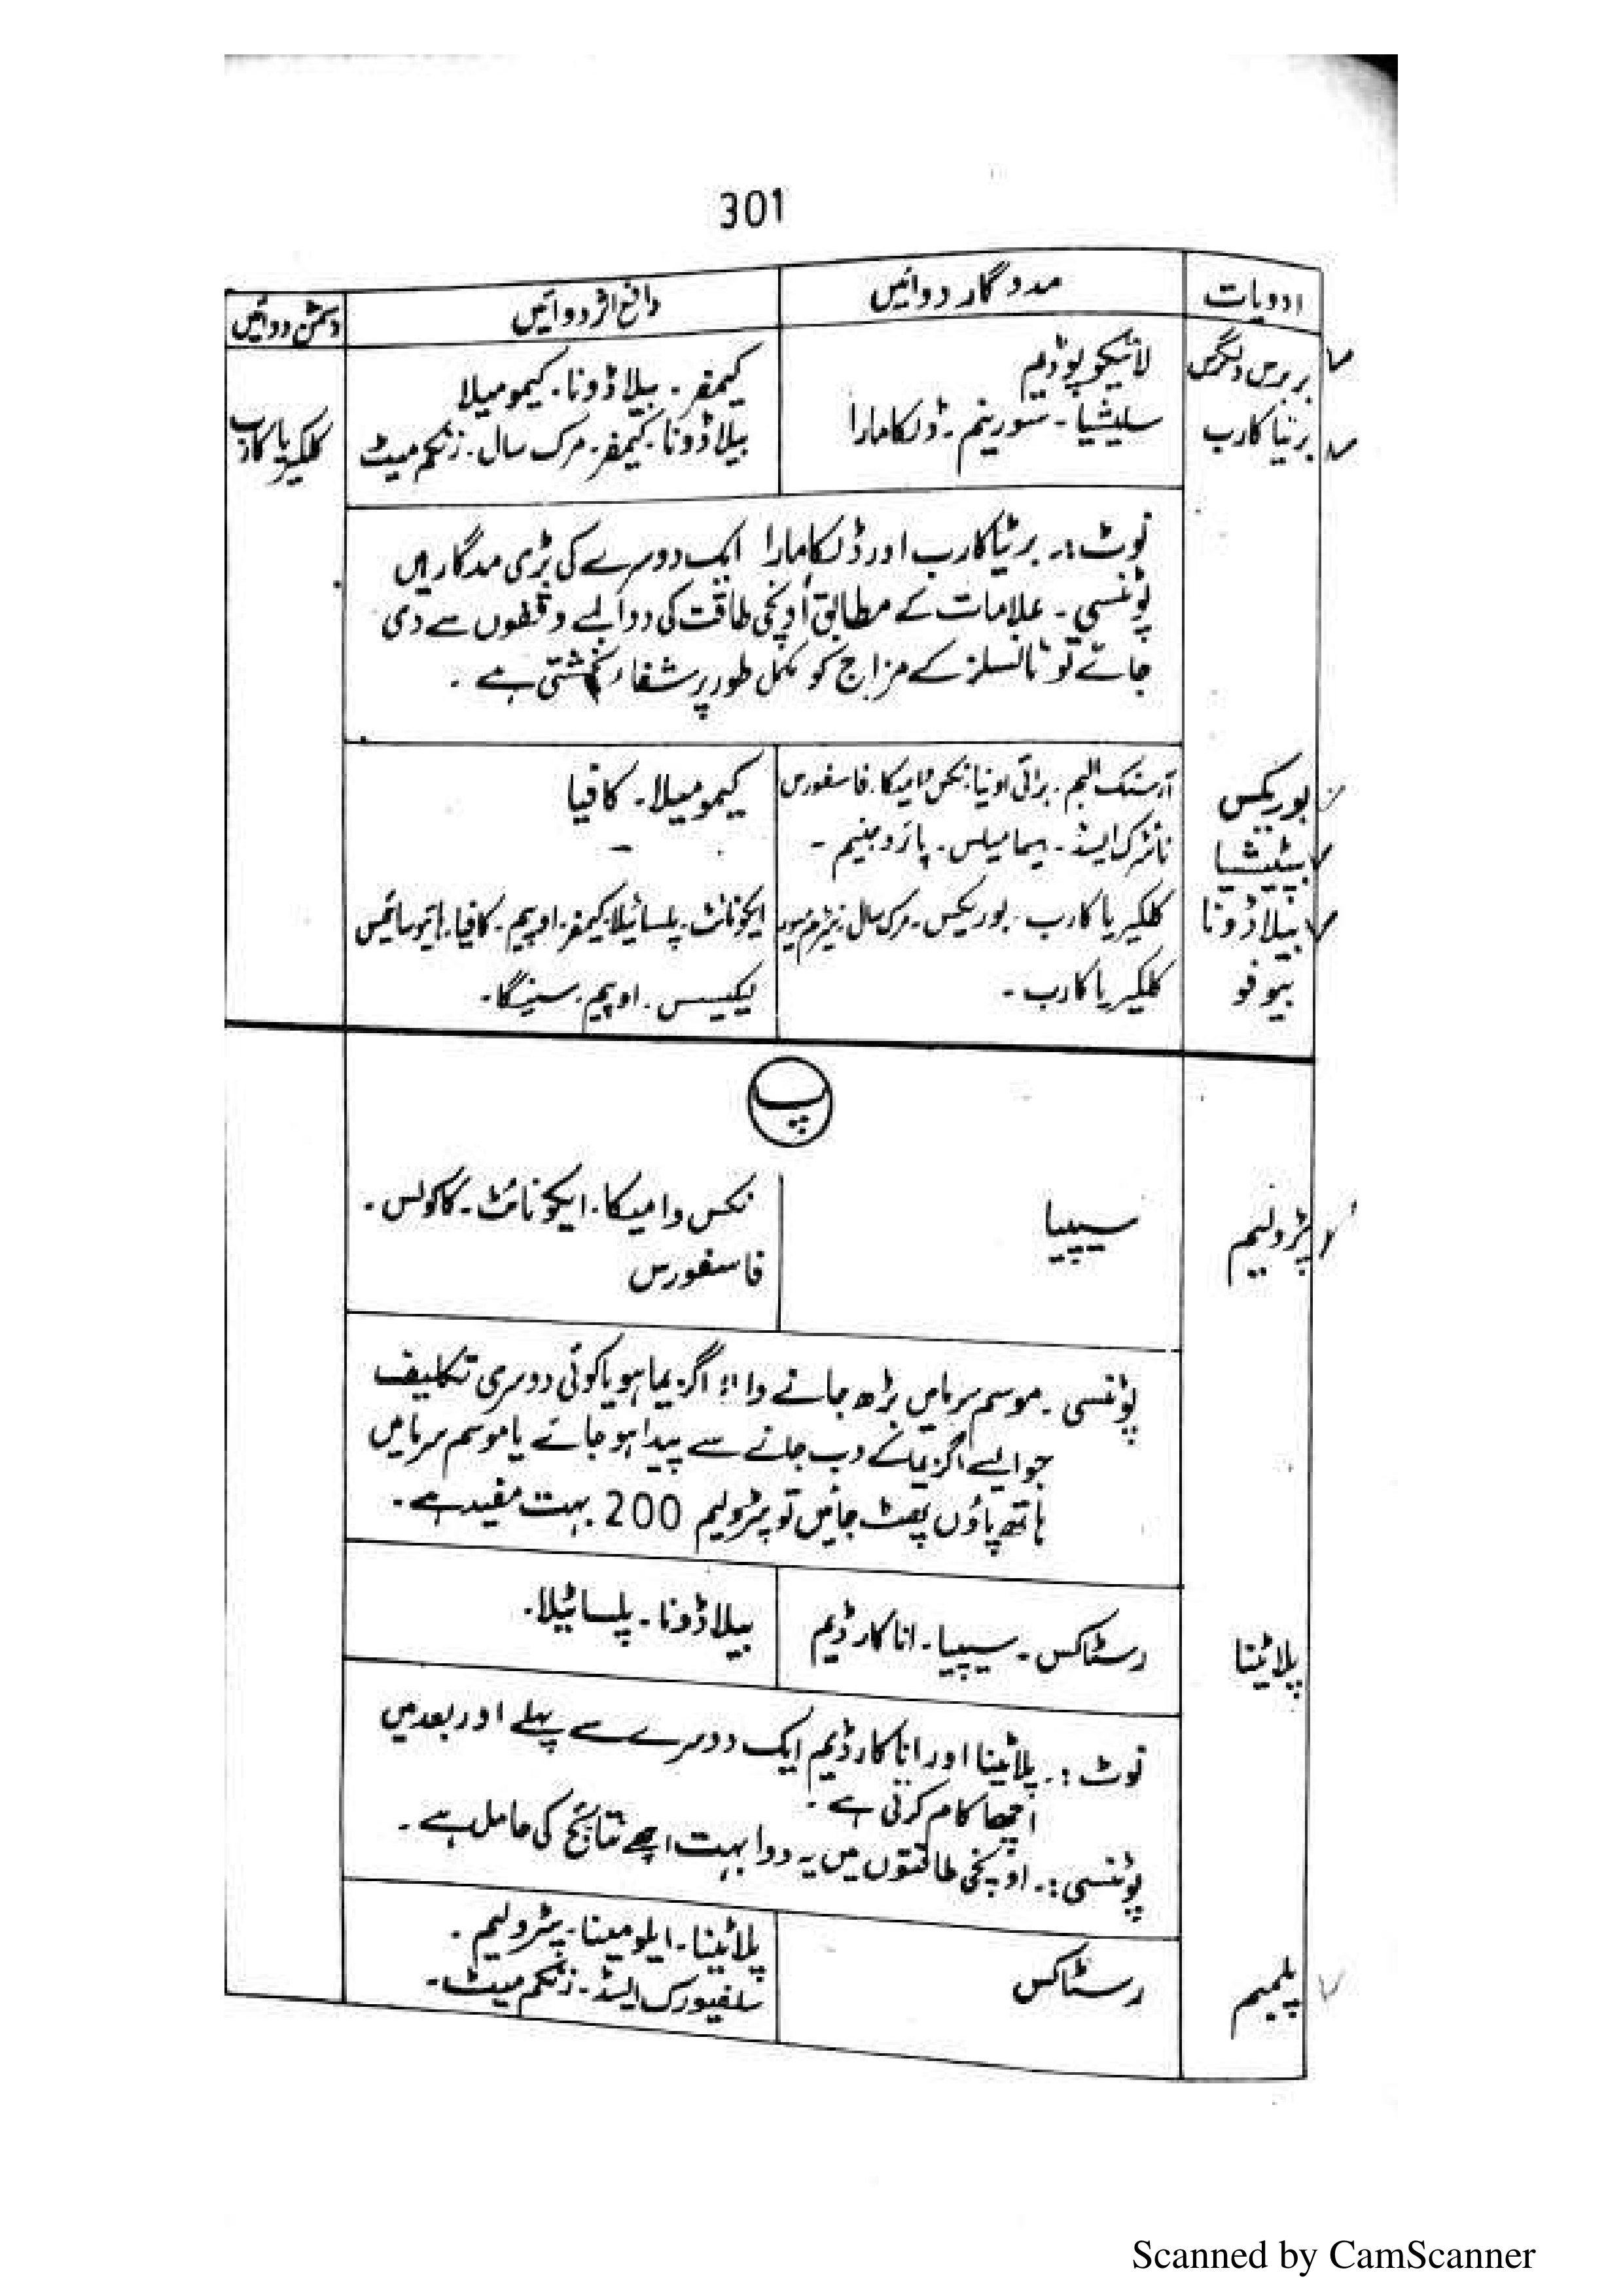 301
ادویات مددگار دوائیں دافع اثر دوائیں دشمن دوائیں
بربرس ولگرس لائیکوپوڈیم کیمفر۔ بیلاڈونا۔ کیمومیلا
برٹیا کارب سلیشیا۔ سورینم۔ ڈلکامارا بیلاڈونا۔ کیمفر۔ مرک سال۔ زنکم میٹ کلکیریا کارب
نوٹ :۔ برٹیا کارب اور ڈلکامارا ایک دوسرے کی بڑی مددگار ہیں
پوٹنسی۔ علامات کے مطابق اُونچی طاقت کی دوا لمبے وقفوں سے دی
جائے تو ٹانسلز کے مزاج کو مکمل طور پر شفاء بخشتی ہے۔
بوریکس آرسنک البم۔ برائی اونیا۔ نکس وامیکا۔ فاسفورس کیمومیلا۔ کافیا
بیپٹیشیا نائٹرک ایسڈ۔ ہیمامیلس۔ پائروجینیم۔ –
بیلاڈونا کلکیریا کارب۔ بوریکس۔ مرک سال۔ نیٹرم میور ایکونائٹ۔ پلساٹیلا۔ کیمفر۔ اوپیم۔ کافیا۔ ہائیوسائمس
بیوفو کلکیریا کارب۔ لیکیسس۔ اوپیم۔ سینگا۔
پ
پٹرولیم سیپیا نکس وامیکا۔ ایکونائٹ۔ کاکولس۔
فاسفورس
پوٹنسی۔ موسم سرما میں بڑھ جانے والا اگزیما ہو یا کوئی دوسری تکلیف
جو ایسے اگزیما کے دب جانے سے پیدا ہو جائے یا موسم سرما میں
ہاتھ پاؤں پھٹ جائیں تو پٹرولیم 200 بہت مفید ہے۔
پلاٹینا رسٹاکس۔ سیپیا۔ اناکارڈیم بیلاڈونا۔ پلساٹیلا۔
نوٹ :۔ پلاٹینا اور اناکارڈیم ایک دوسرے سے پہلے اور بعد میں
اچھا کام کرتی ہے۔
پوٹنسی :۔ اونچی طاقتوں میں یہ دوا بہت اچھے نتائج کی حامل ہے۔
پلمبم رسٹاکس پلاٹینا۔ ایلومینا۔ پٹرولیم۔
سلفیورک ایسڈ۔ زنکم میٹ۔
Scanned by CamScanner